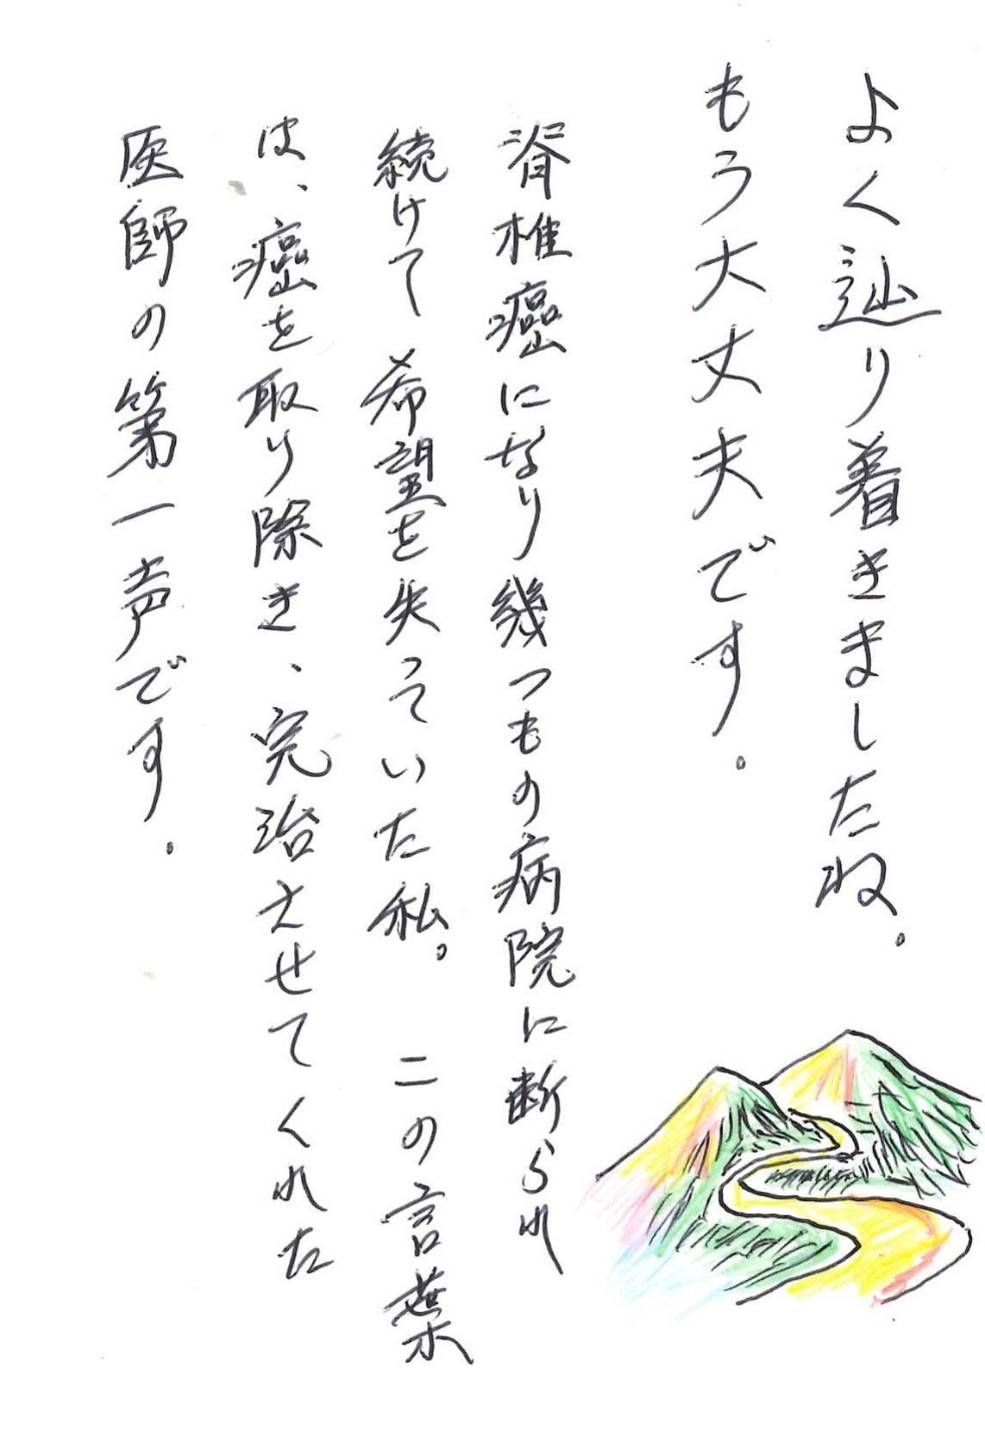 よく辿り着きましたね。
もう大丈夫です。
脊椎癌になり幾つもの病院に断られ
続けて希望を失っていた私。この言葉
は、癌を取り除き、完治させてくれた
医師の第一声です。